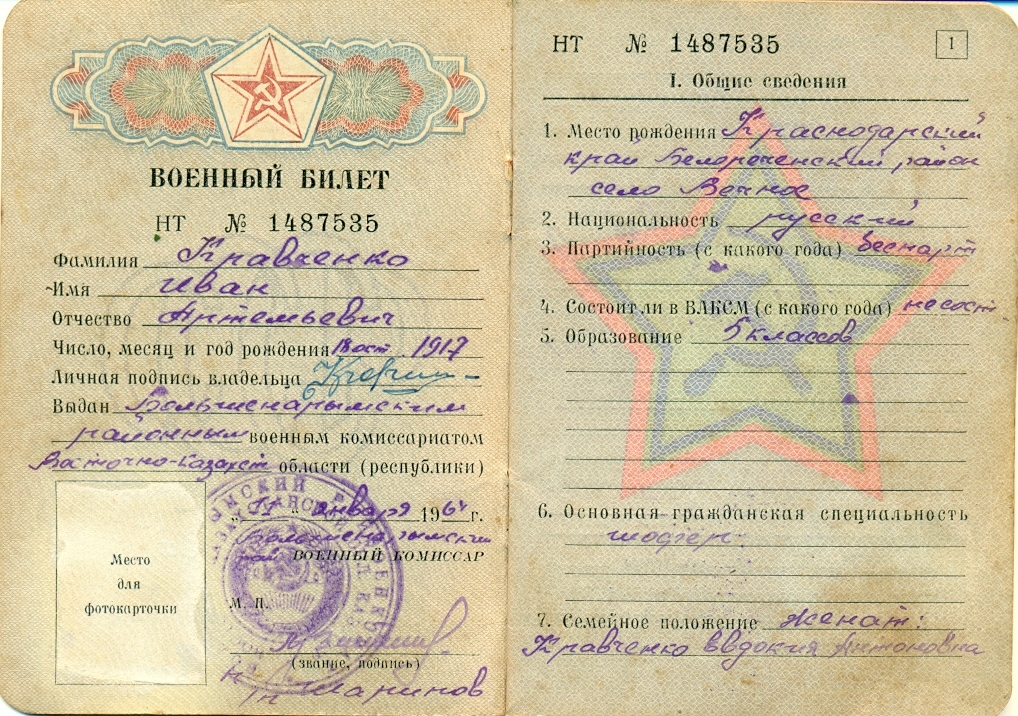 ВОЕННЫЙ БИЛЕТ
НТ № 1487535
Фамилия Кравченко
Имя Иван
Отчество Артемьевич
Число, месяц и год рождения 1917
Личная подпись владельца
Выдан Большенарымским
районным военным комиссариатом
Восточно-Казахст области (республики)
января 1964 г.
Большенарымский
рай ВОЕННЫЙ КОМИССАР
Место
для
фотокарточки
М. П.
(звание, подпись)
НТ № 1487535
1
I. Общие сведения
1. Место рождения Краснодарский
край Белореченский район
село Вечное
2. Национальность русский
3. Партийность (с какого года) беспарт
4. Состоит ли в ВЛКСМ (с какого года) не сост
5. Образование 5 классов
6. Основная гражданская специальность
шофер
7. Семейное положение женат:
Кравченко Евдокия Антоновна